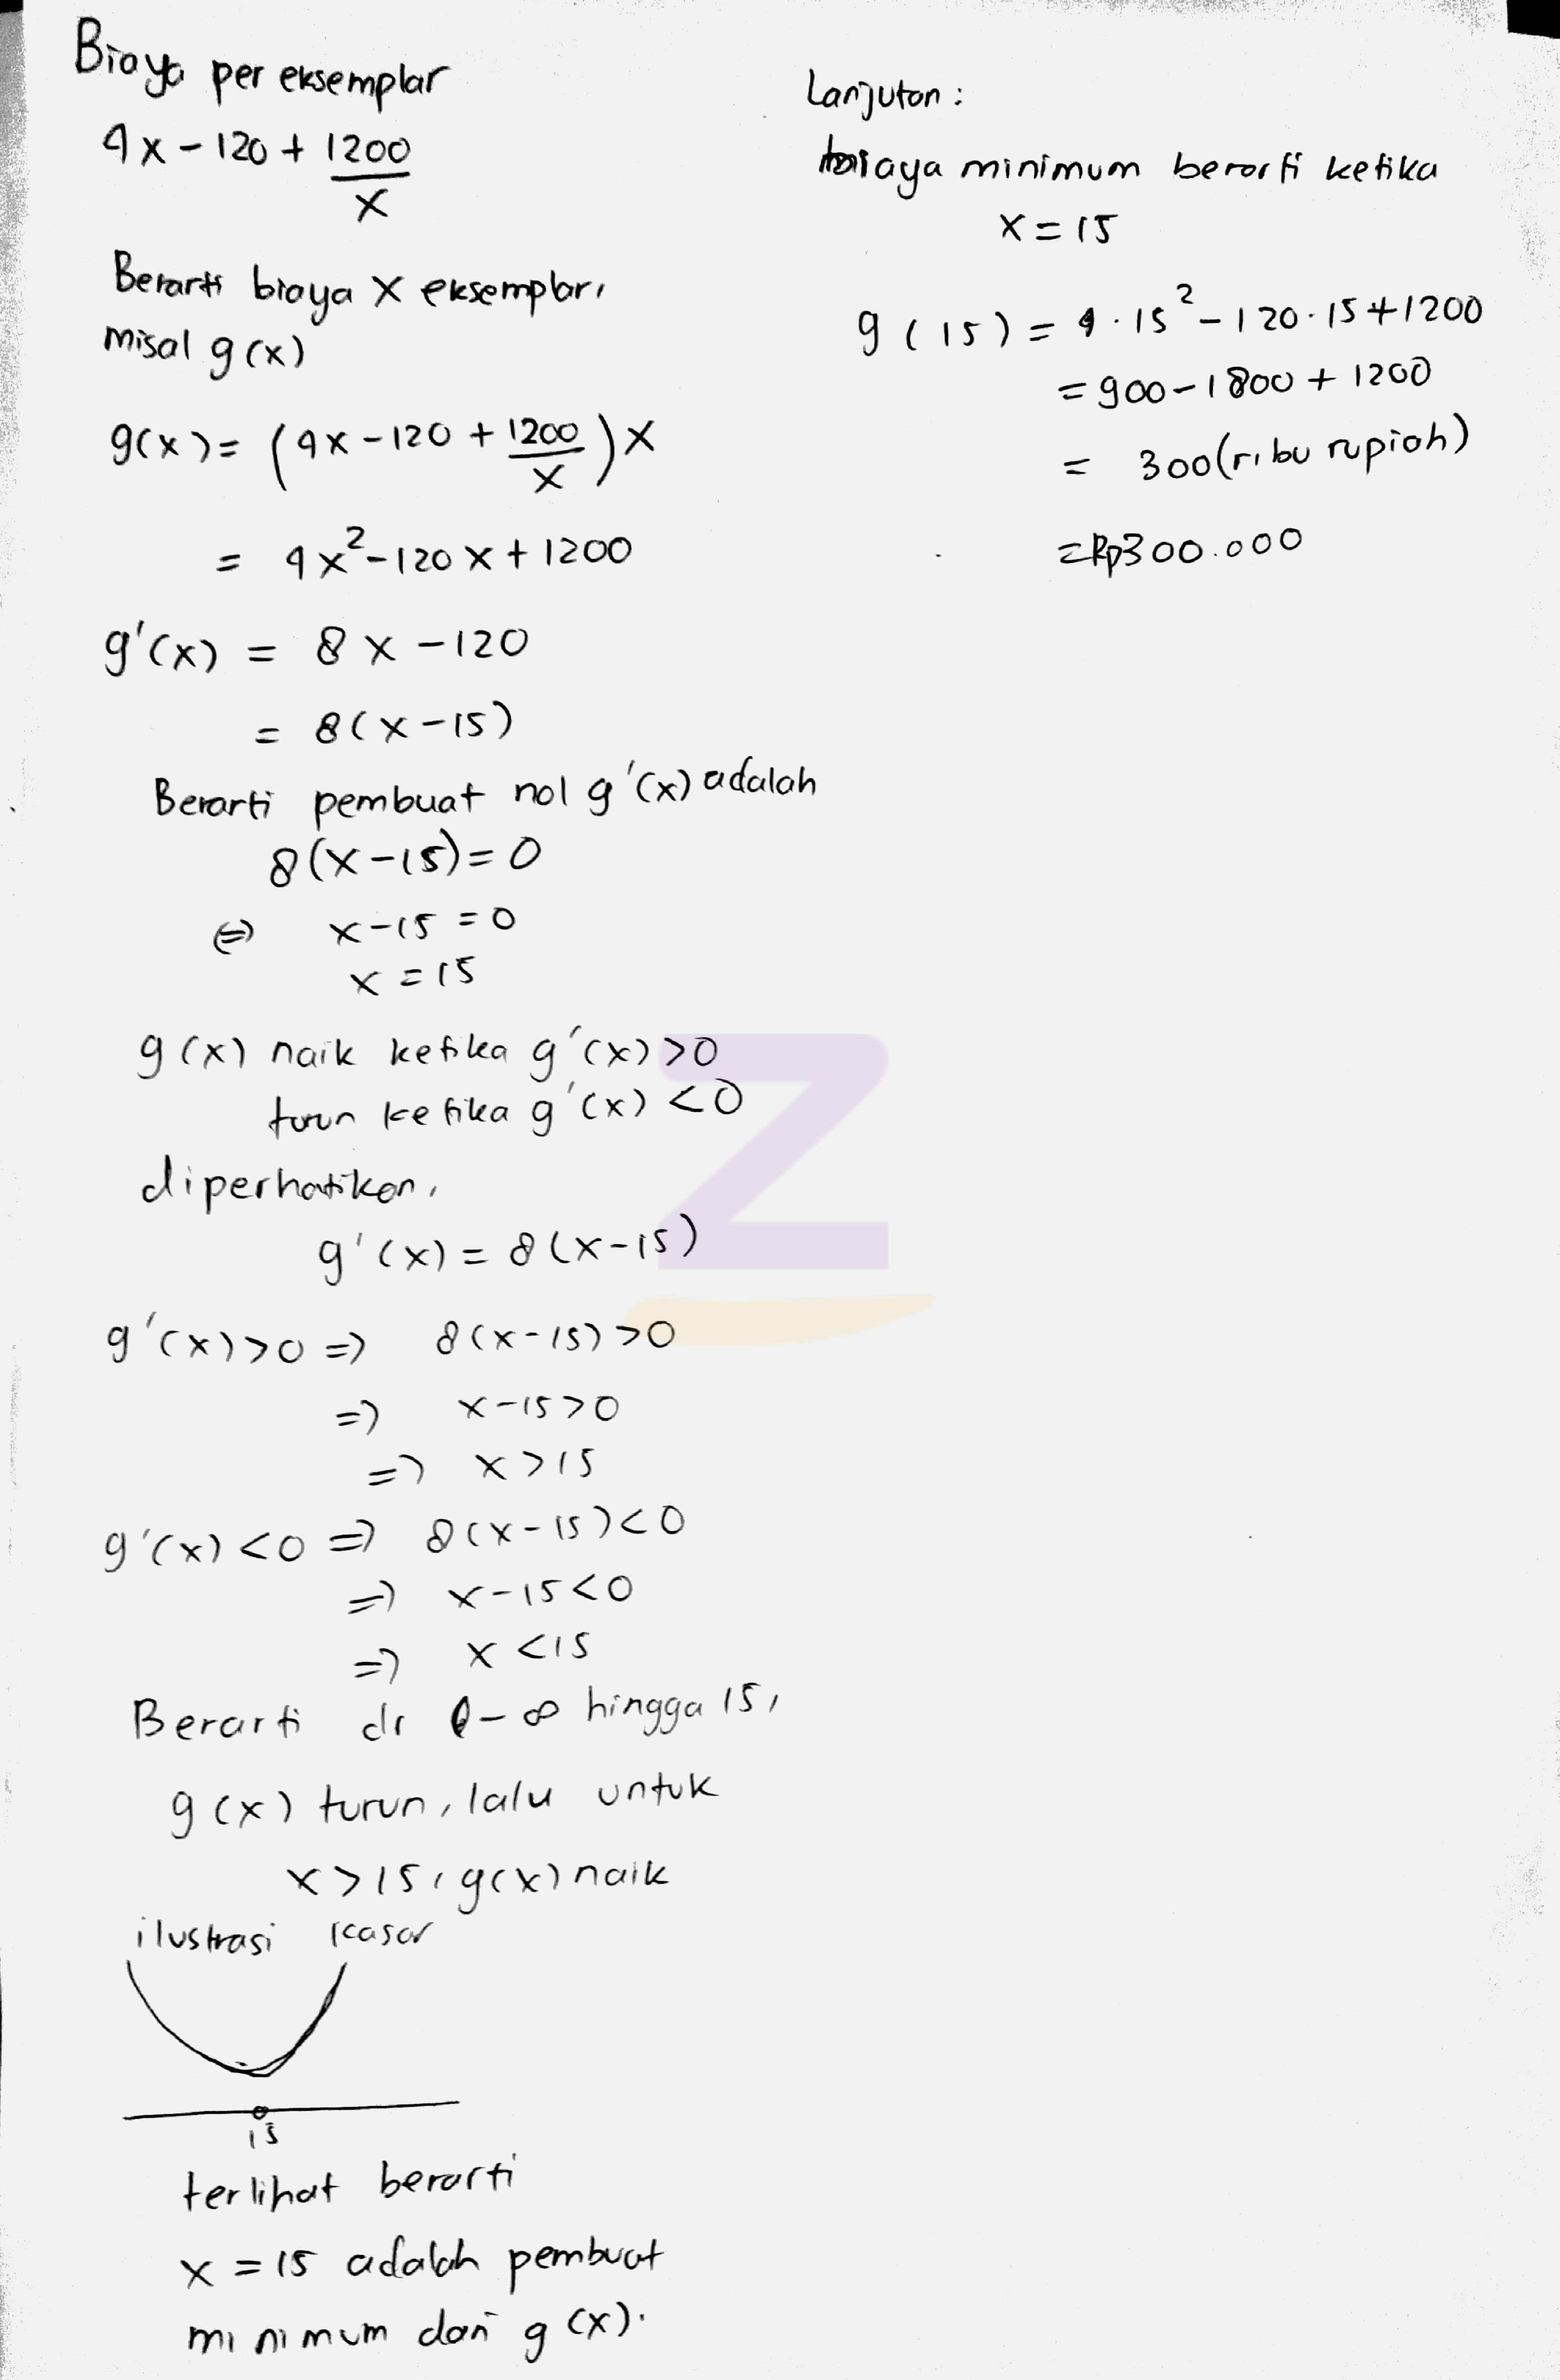 Biaya per eksemplar
4x - 120 + 1200/x
Berarti biaya x eksemplar,
misal g(x)
g(x) = (4x - 120 + 1200/x)x
= 4x² - 120x + 1200
g'(x) = 8x - 120
= 8(x - 15)
Berarti pembuat nol g'(x) adalah
8(x - 15) = 0
⇔ x - 15 = 0
x = 15
g(x) naik ketika g'(x) > 0
turun ketika g'(x) < 0
diperhatikan,
g'(x) = 8(x - 15)
g'(x) > 0 ⇒ 8(x - 15) > 0
⇒ x - 15 > 0
⇒ x > 15
g'(x) < 0 ⇒ 8(x - 15) < 0
⇒ x - 15 < 0
⇒ x < 15
Berarti di -∞ hingga 15,
g(x) turun, lalu untuk
x > 15, g(x) naik
ilustrasi kasar
15
terlihat berarti
x = 15 adalah pembuat
minimum dari g(x).
Lanjutan:
biaya minimum berarti ketika
x = 15
g(15) = 4 · 15² - 120 · 15 + 1200
= 900 - 1800 + 1200
= 300 (ribu rupiah)
= Rp300.000
Z